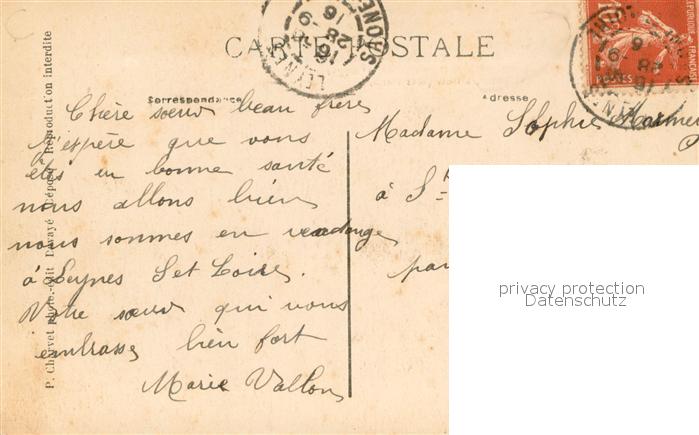 CARTE POSTALE
Correspondance
Adresse
Chère sœur beau frère
J'espère que vous
etes en bonne santé
nous allons bien
nous sommes en vendange
à Leynes S et Loire.
Votre sœur qui vous
embrasse bien fort
Marie Vallon
Madame Sophie
à S
par
P. Chervet photo. édit Davayé (Déposé) Reproduction interdite
10c
POSTES
REPUBLIQUE FRANÇAISE
privacy protection
Datenschutz